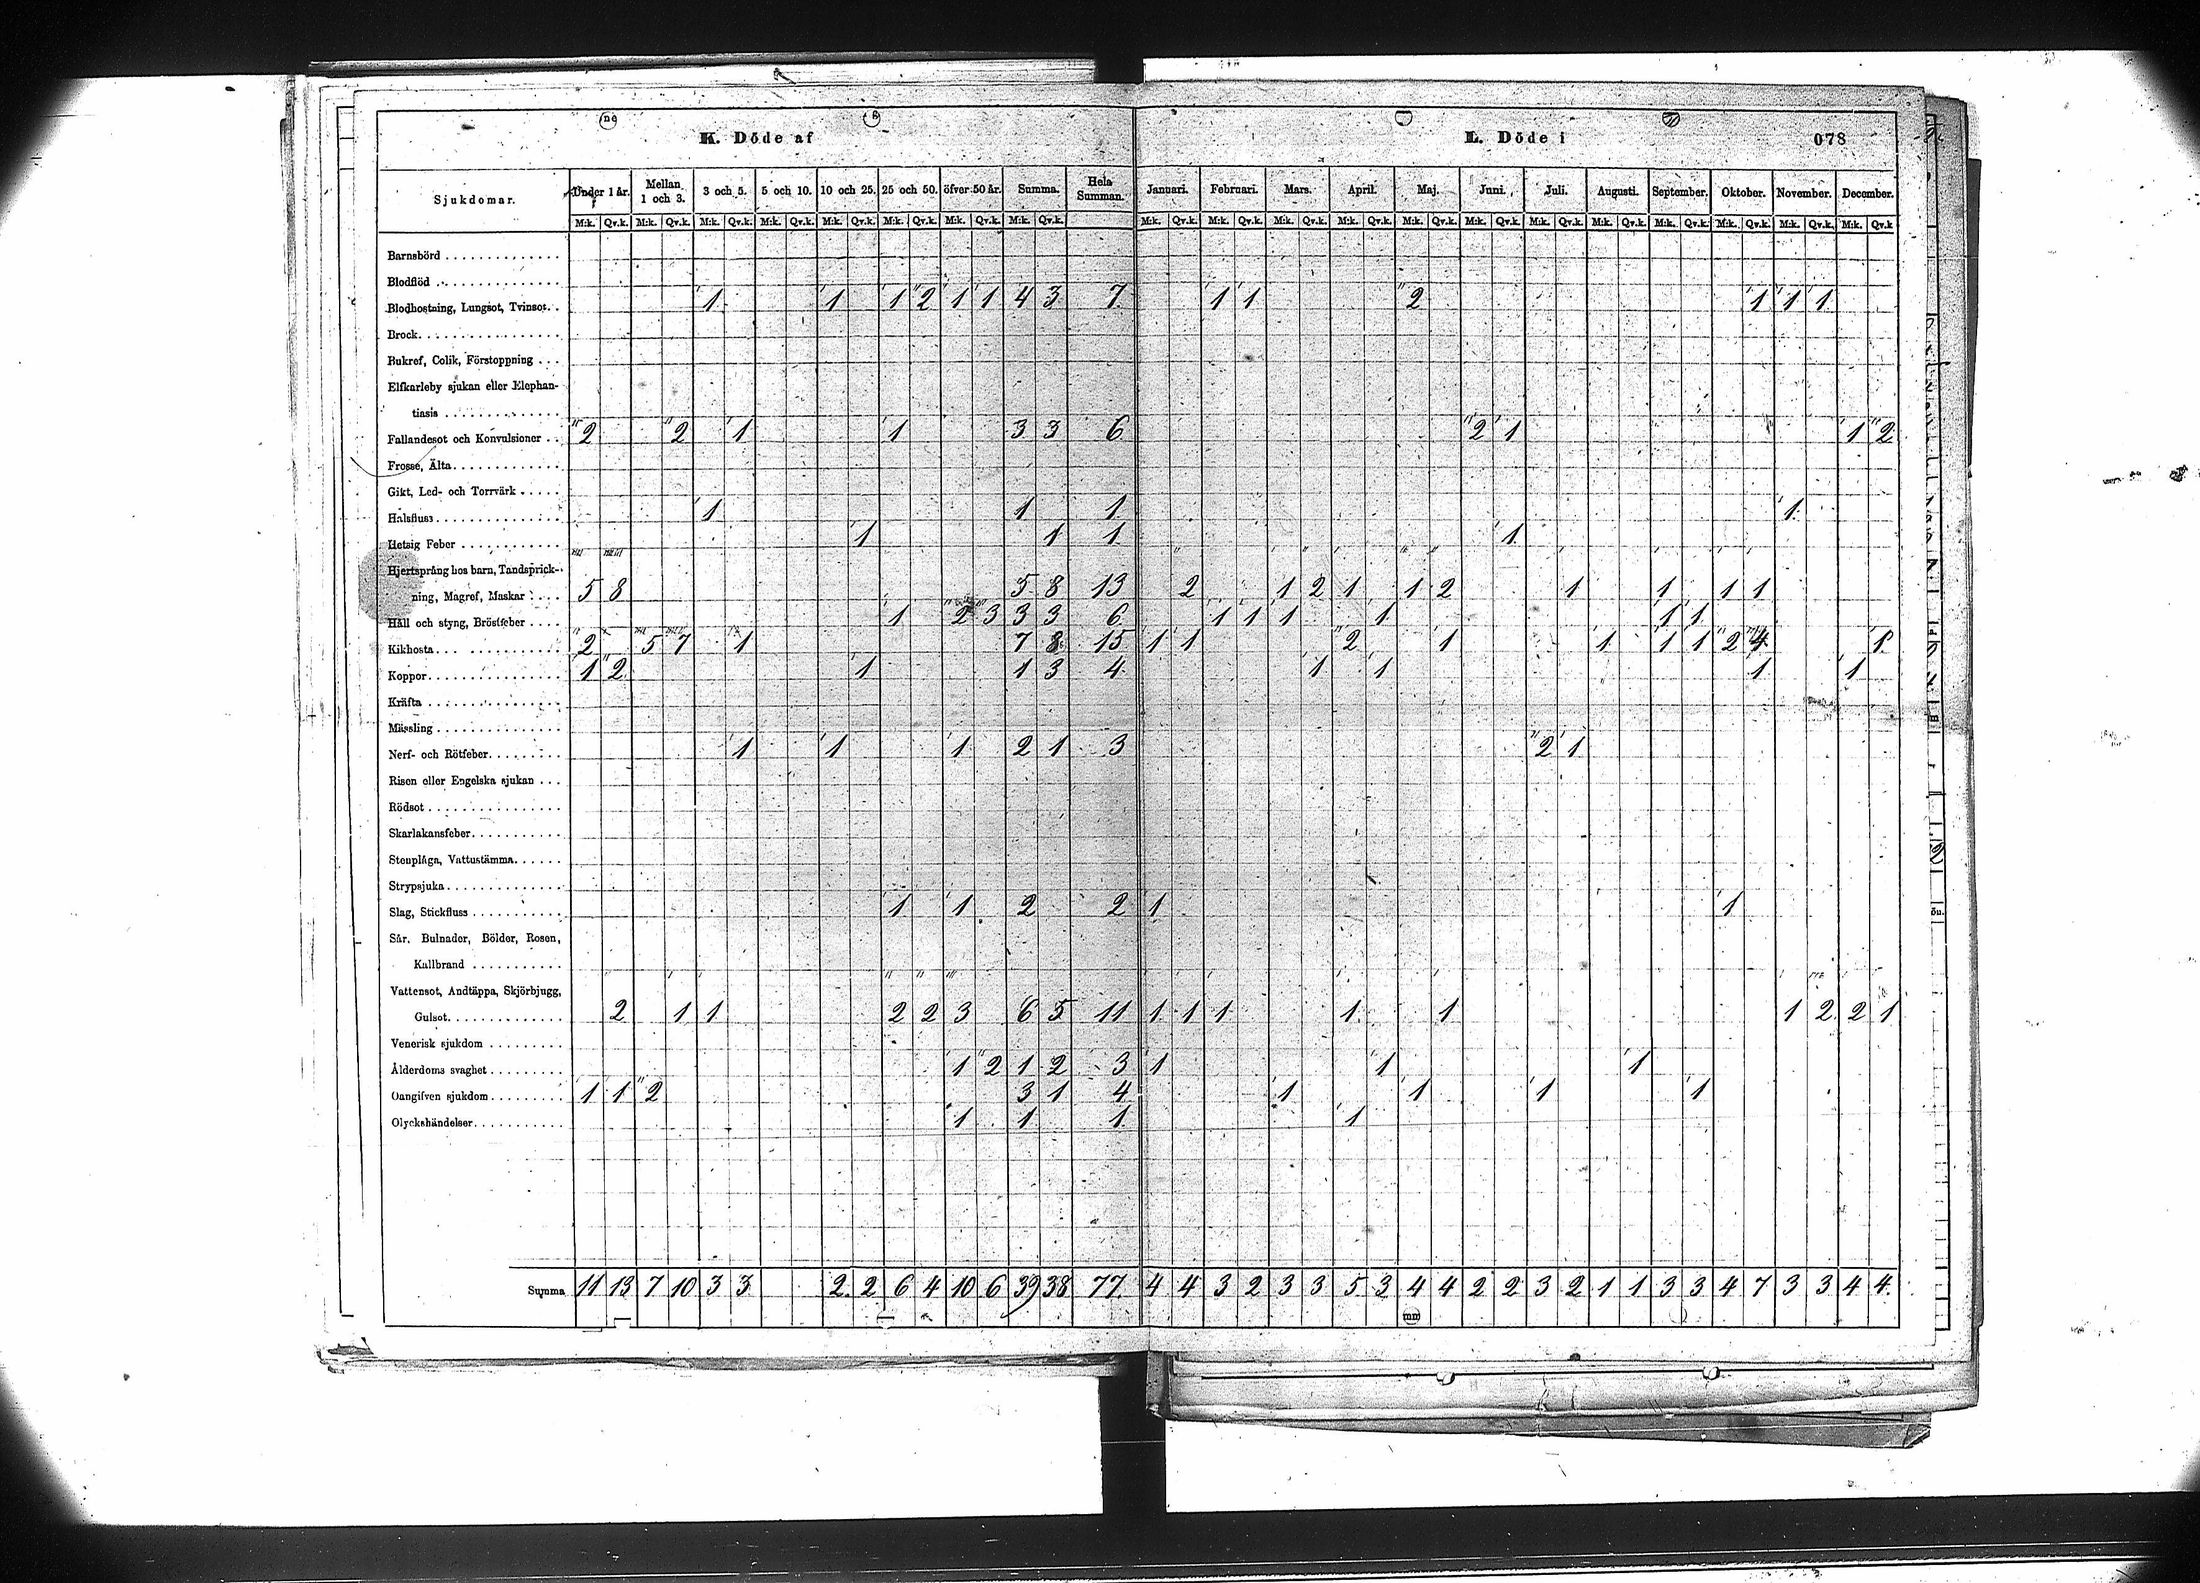 K. Döde af L. Döde i 078
Sjukdomar. Under 1 år. Mellan 1 och 3. 3 och 5. 5 och 10. 10 och 25. 25 och 50. öfver 50 år. Summa. Hela Summan. Januari. Februari. Mars. April. Maj. Juni. Juli. Augusti. September. Oktober. November. December.
M:k. Qv.k. M:k. Qv.k. M:k. Qv.k. M:k. Qv.k. M:k. Qv.k. M:k. Qv.k. M:k. Qv.k. M:k. Qv.k. M:k. Qv.k. M:k. Qv.k. M:k. Qv.k. M:k. Qv.k. M:k. Qv.k. M:k. Qv.k. M:k. Qv.k. M:k. Qv.k. M:k. Qv.k. M:k. Qv.k. M:k. Qv.k. M:k. Qv.k
Barnsbörd
Blodflöd
Blodhostning, Lungsot, Tvinsot 1 1 1 2 1 1 4 3 7 1 1 2 1 1 1
Brock
Bukref, Colik, Förstoppning
Elfkarleby sjukan eller Elephan-
tiasis
Fallandesot och Konvulsioner 2 2 1 1 3 3 6 2 1 1 2
Frossa, Älta
Gikt, Led- och Torrvärk
Halsfluss 1 1 1 1
Hetsig Feber 1 1 1 1
Hjertsprång hos barn, Tandsprick-
ning, Magref, Maskar 5 8 5 8 13 2 1 2 1 1 2 1 1 1 1
Håll och styng, Bröstfeber 1 2 3 3 3 6 1 1 1 1 1 1
Kikhosta 2 5 7 1 7 8 15 1 1 2 1 1 1 1 2 4 1
Koppor 1 2 1 1 3 4 1 1 1 1
Kräfta
Mässling
Nerf- och Rötfeber 1 1 1 2 1 3 2 1
Risen eller Engelska sjukan
Rödsot
Skarlakansfeber
Stenplåga, Vattustämma
Strypsjuka
Slag, Stickfluss 1 1 2 2 1 1
Sår, Bulnader, Bölder, Rosen,
Kallbrand
Vattensot, Andtäppa, Skjörbjugg,
Gulsot 2 1 1 2 2 3 6 5 11 1 1 1 1 1 1 2 2 1
Venerisk sjukdom
Ålderdoms svaghet 1 2 1 2 3 1 1 1
Oangifven sjukdom 1 1 2 3 1 4 1 1 1 1
Olyckshändelser 1 1 1 1
Summa 11 13 7 10 3 3 2 2 6 4 10 6 39 38 77 4 4 3 2 3 3 5 3 4 4 2 2 3 2 1 1 3 3 4 7 3 3 4 4